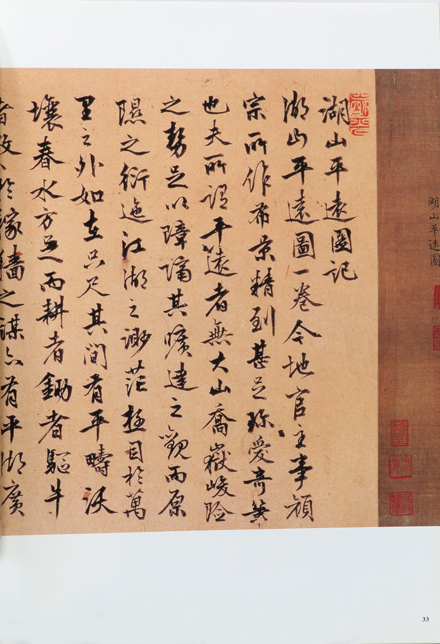 湖山平遠圖
湖山平遠圖記
湖山平遠圖一卷今地官主事顏
宗所作布景精到甚足珍愛奇
也夫所謂平遠者無大山喬嶽峻險
之勢足以障其曠達之觀而原
隰之衍迤江湖之渺茫極目於萬
里之外如在只尺其間有平疇沃
壤春水方足而耕者鋤者驅牛
者於稼穡之謀亦有平湖廣
33